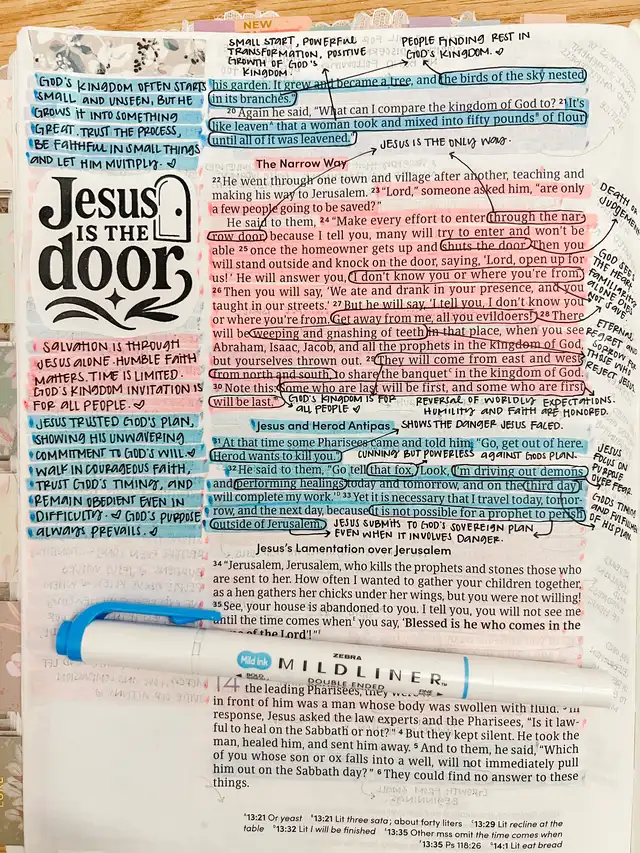 NEW
SMALL START, POWERFUL
TRANSFORMATION, POSITIVE
GROWTH OF GOD'S
KINGDOM.
PEOPLE FINDING REST IN
GOD'S KINGDOM. ♡
GOD'S KINGDOM OFTEN STARTS
SMALL AND UNSEEN, BUT HE
GROWS IT INTO SOMETHING
GREAT. TRUST THE PROCESS,
BE FAITHFUL IN SMALL THINGS
AND LET HIM MULTIPLY. ♡
his garden. It grew and became a tree, and the birds of the sky nested
in its branches."
20 Again he said, "What can I compare the kingdom of God to? 21 It's
like leaven a that a woman took and mixed into fifty pounds b of flour
until all of it was leavened."
JESUS IS THE ONLY WAY.
The Narrow Way
22 He went through one town and village after another, teaching and
making his way to Jerusalem. 23 "Lord," someone asked him, "are only
a few people going to be saved?"
He said to them, 24 "Make every effort to enter through the nar-
row door, because I tell you, many will try to enter and won't be
able 25 once the homeowner gets up and shuts the door. Then you
will stand outside and knock on the door, saying, 'Lord, open up for
us!' He will answer you, 'I don't know you or where you're from.'
26 Then you will say, 'We ate and drank in your presence, and you
taught in our streets.' 27 But he will say, 'I tell you, I don't know you
or where you're from. Get away from me, all you evildoers!' 28 There
will be weeping and gnashing of teeth in that place, when you see
Abraham, Isaac, Jacob, and all the prophets in the kingdom of God
but yourselves thrown out. 29 They will come from east and west,
from north and south, to share the banquet c in the kingdom of God.
30 Note this: Some who are last will be first, and some who are first
will be last."
GOD'S KINGDOM IS FOR
ALL PEOPLE ♡
REVERSAL OF WORLDLY EXPECTATIONS.
HUMILITY AND FAITH ARE HONORED.
DEATH OR
JUDGEMENT
GOD SEES
THE HEART
FAMILIARITY
ALONE DOES
NOT SAVE.
ETERNAL
REGRET AND
SORROW FOR
THOSE WHO
REJECT JESUS.
Jesus
IS THE
door
SALVATION IS THROUGH
JESUS ALONE. HUMBLE FAITH
MATTERS. TIME IS LIMITED.
GOD'S KINGDOM INVITATION IS
FOR ALL PEOPLE. ♡
JESUS TRUSTED GOD'S PLAN,
SHOWING HIS UNWAVERING
COMMITMENT TO GOD'S WILL. ♡
WALK IN COURAGEOUS FAITH,
TRUST GOD'S TIMING, AND
REMAIN OBEDIENT EVEN IN
DIFFICULTY. ♡ GOD'S PURPOSE
ALWAYS PREVAILS. ♡
Jesus and Herod Antipas
SHOWS THE DANGER JESUS FACED.
31 At that time some Pharisees came and told him, "Go, get out of here.
Herod wants to kill you."
CUNNING BUT POWERLESS AGAINST GODS PLAN.
32 He said to them, "Go tell that fox, 'Look, I'm driving out demons
and performing healings today and tomorrow, and on the third day I
will complete my work.' 33 Yet it is necessary that I travel today, tomor-
row, and the next day, because it is not possible for a prophet to perish
outside of Jerusalem.
JESUS SUBMITS TO GOD'S SOVEREIGN PLAN
EVEN WHEN IT INVOLVES DANGER.
JESUS
FOCUS ON
PURPOSE
OVER FEAR.
GODS TIMING
AND FULFILLMENT
OF HIS PLAN.
Jesus's Lamentation over Jerusalem
34 "Jerusalem, Jerusalem, who kills the prophets and stones those who
are sent to her. How often I wanted to gather your children together,
as a hen gathers her chicks under her wings, but you were not willing!
35 See, your house is abandoned to you. I tell you, you will not see me
until the time comes when you say, 'Blessed is he who comes in the
of the Lord'!"
Mild ink
ZEBRA
MILDLINER™
BOLD
DOUBLE ENDED
FINE
14
the leading Pharisees, they were
in front of him was a man whose body was swollen with fluid. 3 In
response, Jesus asked the law experts and the Pharisees, "Is it law-
ful to heal on the Sabbath or not?" 4 But they kept silent. He took the
man, healed him, and sent him away. 5 And to them, he said, "Which
of you whose son or ox falls into a well, will not immediately pull
him out on the Sabbath day?" 6 They could find no answer to these
things.
13:21 Or yeast 13:21 Lit three sata; about forty liters 13:29 Lit recline at the
table 13:32 Lit I will be finished 13:35 Other mss omit the time comes when
13:35 Ps 118:26 14:1 Lit eat bread